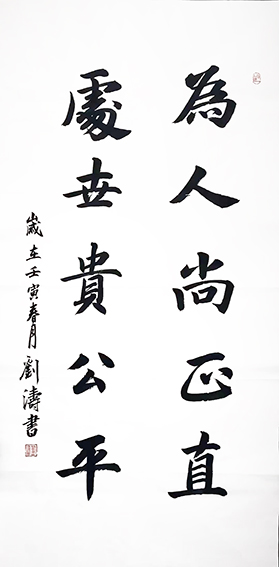 為人尚正直
處世貴公平
歲在壬寅春月劉濤書